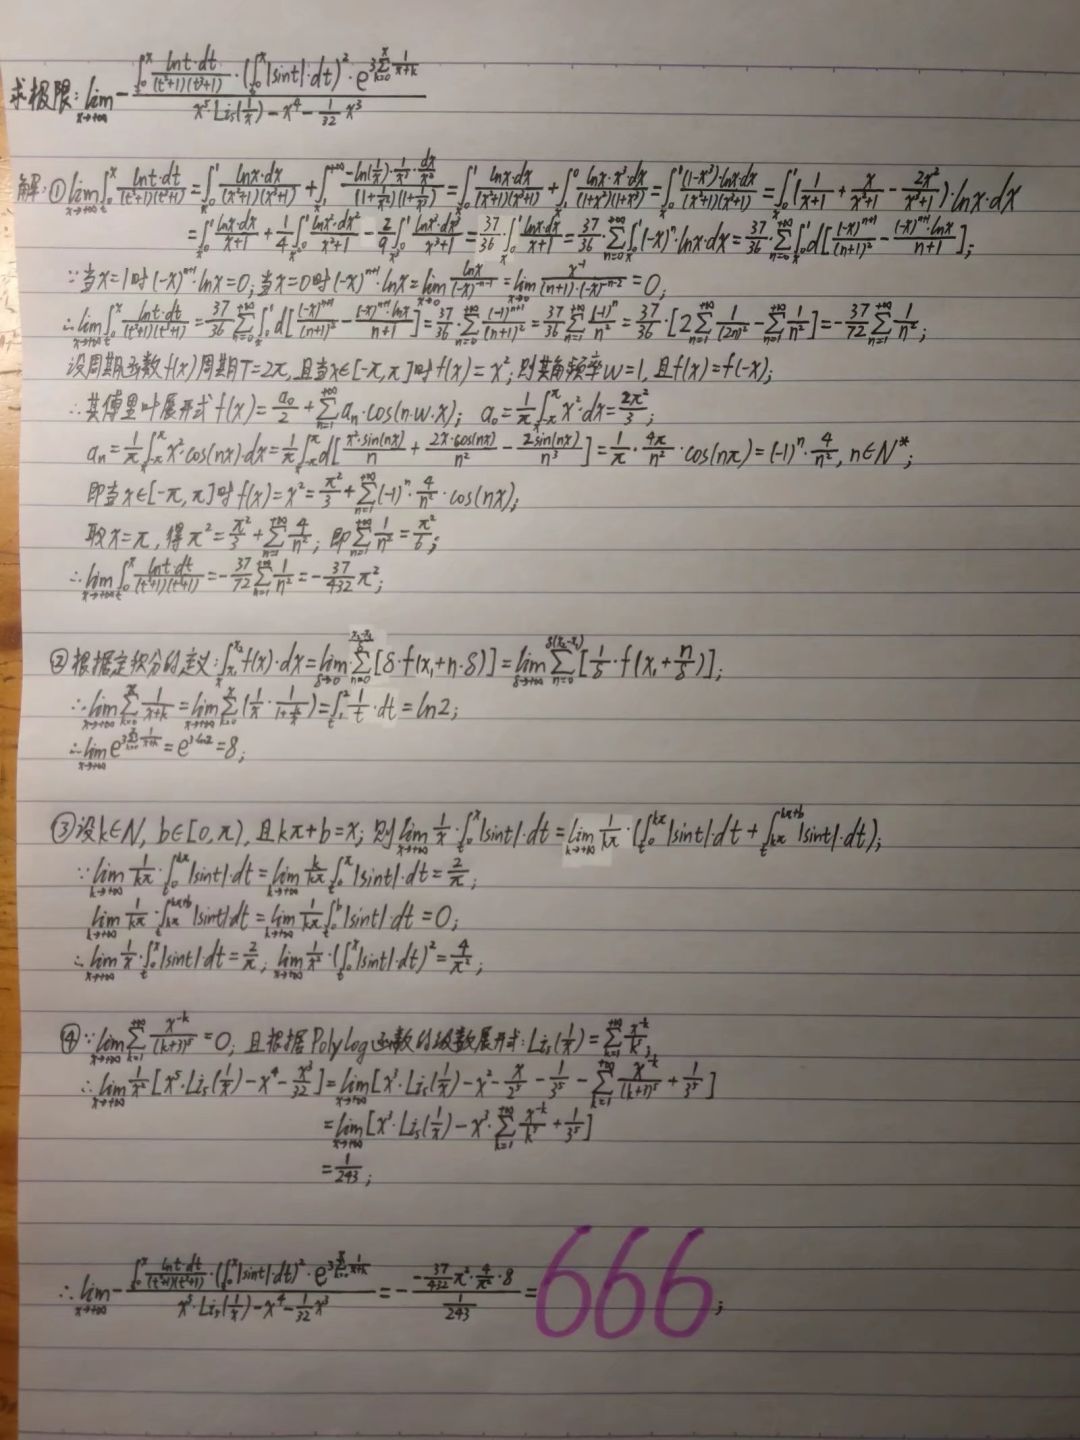 求极限: lim_{x→+∞} - \frac{∫_0^x \frac{lnt·dt}{(t²+1)(t³+1)}·(∫_0^x |sint|·dt)²·e^{3\sum_{k=0}^{x}\frac{1}{x+k}}}{x⁵·Li₅(\frac{1}{x})-x⁴-\frac{1}{32}x³}
解: ① lim_{x→+∞} ∫_0^x \frac{lnt·dt}{(t²+1)(t³+1)} = ∫_0^1 \frac{lnx·dx}{(x²+1)(x³+1)} + ∫_1^{+∞} \frac{-ln(\frac{1}{x})·\frac{1}{x³}·\frac{dx}{x²}}{(1+\frac{1}{x²})(1+\frac{1}{x³})} = ∫_0^1 \frac{lnx·dx}{(x²+1)(x³+1)} + ∫_1^0 \frac{lnx·x³·dx}{(1+x²)(1+x³)} = ∫_0^1 \frac{(1-x³)·lnx·dx}{(x²+1)(x³+1)} = ∫_0^1 (\frac{1}{x+1}+\frac{x}{x²+1}-\frac{2x²}{x³+1})·lnx·dx
= ∫_0^1 \frac{lnx·dx}{x+1} + \frac{1}{4}∫_0^1 \frac{lnx²·dx²}{x²+1} - \frac{2}{9}∫_0^1 \frac{lnx³·dx³}{x³+1} = \frac{37}{36}·∫_0^1 \frac{lnx·dx}{x+1} = \frac{37}{36}·\sum_{n=0}^{+∞}∫_0^1 (-x)^n·lnx·dx = \frac{37}{36}·\sum_{n=0}^{+∞}∫_0^1 d[\frac{(-x)^{n+1}}{(n+1)²}-\frac{(-x)^{n+1}·lnx}{n+1}];
∵当x=1时(-x)^{n+1}·lnx=0; 当x=0时(-x)^{n+1}·lnx= lim_{x→0} \frac{lnx}{(-x)^{-n-1}} = lim_{x→0} \frac{x^{-1}}{(n+1)·(-x)^{-n-2}} = 0;
∴ lim_{x→+∞} ∫_0^x \frac{lnt·dt}{(t²+1)(t³+1)} = \frac{37}{36}\sum_{n=0}^{+∞}∫_0^1 d[\frac{(-x)^{n+1}}{(n+1)²}-\frac{(-x)^{n+1}·lnx}{n+1}] = \frac{37}{36}·\sum_{n=0}^{+∞}\frac{(-1)^{n+1}}{(n+1)²} = \frac{37}{36}\sum_{n=1}^{+∞}\frac{(-1)^n}{n²} = \frac{37}{36}·[2\sum_{n=1}^{+∞}\frac{1}{(2n)²}-\sum_{n=1}^{+∞}\frac{1}{n²}] = -\frac{37}{72}\sum_{n=1}^{+∞}\frac{1}{n²};
设周期函数f(x)周期T=2π, 且当x∈[-π,π]时f(x)=x²; 则其角频率w=1, 且f(x)=f(-x);
∴其傅里叶展开式f(x)=\frac{a₀}{2}+\sum_{n=1}^{+∞}a_n·cos(n·w·x); a₀=\frac{1}{π}∫_{-π}^{π} x²·dx=\frac{2π²}{3};
a_n=\frac{1}{π}∫_{-π}^{π} x²·cos(nx)·dx=\frac{1}{π}∫_{-π}^{π} d[\frac{x²·sin(nx)}{n}+\frac{2x·cos(nx)}{n²}-\frac{2sin(nx)}{n³}]=\frac{1}{π}·\frac{4π}{n²}·cos(nπ)=(-1)^n·\frac{4}{n²}, n∈N*;
即当x∈[-π,π]时f(x)=x²=\frac{π²}{3}+\sum_{n=1}^{+∞}(-1)^n·\frac{4}{n²}·cos(nx);
取x=π, 得π²=\frac{π²}{3}+\sum_{n=1}^{+∞}\frac{4}{n²}; 即\sum_{n=1}^{+∞}\frac{1}{n²}=\frac{π²}{6};
∴ lim_{x→+∞} ∫_0^x \frac{lnt·dt}{(t²+1)(t³+1)} = -\frac{37}{72}\sum_{n=1}^{+∞}\frac{1}{n²} = -\frac{37}{432}π²;
②根据定积分的定义: ∫_{x₁}^{x₂} f(x)·dx = lim_{δ→0} \sum_{n=0}^{\frac{x₂-x₁}{δ}}[δ·f(x₁+n·δ)] = lim_{δ→+∞} \sum_{n=0}^{δ(x₂-x₁)}[\frac{1}{δ}·f(x₁+\frac{n}{δ})];
∴ lim_{x→+∞} \sum_{k=0}^{x}\frac{1}{x+k} = lim_{x→+∞} \sum_{k=0}^{x}(\frac{1}{x}·\frac{1}{1+\frac{k}{x}}) = ∫_1^2 \frac{1}{t}·dt = ln2;
∴ lim_{x→+∞} e^{3\sum_{k=0}^{x}\frac{1}{x+k}} = e^{3·ln2} = 8;
③设k∈N, b∈[0,π), 且kπ+b=x; 则 lim_{x→+∞} \frac{1}{x}·∫_0^x |sint|·dt = lim_{k→+∞} \frac{1}{kπ}·(∫_0^{kπ} |sint|·dt+∫_{kπ}^{kπ+b} |sint|·dt);
∵ lim_{k→+∞} \frac{1}{kπ}·∫_0^{kπ} |sint|·dt = lim_{k→+∞} \frac{k}{kπ}∫_0^π |sint|·dt = \frac{2}{π};
lim_{k→+∞} \frac{1}{kπ}·∫_{kπ}^{kπ+b} |sint|·dt = lim_{k→+∞} \frac{1}{kπ}∫_0^b |sint|·dt = 0;
∴ lim_{x→+∞} \frac{1}{x}·∫_0^x |sint|·dt = \frac{2}{π}; lim_{x→+∞} \frac{1}{x²}·(∫_0^x |sint|·dt)² = \frac{4}{π²};
④∵ lim_{x→+∞} \sum_{k=1}^{+∞}\frac{x^{-k}}{(k+3)⁵}=0; 且根据Polylog函数的级数展开式: Li₅(\frac{1}{x})=\sum_{k=1}^{+∞}\frac{x^{-k}}{k⁵};
∴ lim_{x→+∞} \frac{1}{x²}[x⁵·Li₅(\frac{1}{x})-x⁴-\frac{x³}{32}] = lim_{x→+∞} [x³·Li₅(\frac{1}{x})-x²-\frac{x}{2⁵}-\frac{1}{3⁵}-\sum_{k=1}^{+∞}\frac{x^{-k}}{(k+3)⁵}+\frac{1}{3⁵}]
= lim_{x→+∞} [x³·Li₅(\frac{1}{x})-x³·\sum_{k=1}^{+∞}\frac{x^{-k}}{k⁵}+\frac{1}{3⁵}]
= \frac{1}{243};
∴ lim_{x→+∞} - \frac{∫_0^x \frac{lnt·dt}{(t²+1)(t³+1)}·(∫_0^x |sint|·dt)²·e^{3\sum_{k=0}^{x}\frac{1}{x+k}}}{x⁵·Li₅(\frac{1}{x})-x⁴-\frac{1}{32}x³} = -\frac{-\frac{37}{432}π²·\frac{4}{π²}·8}{\frac{1}{243}} = 666;